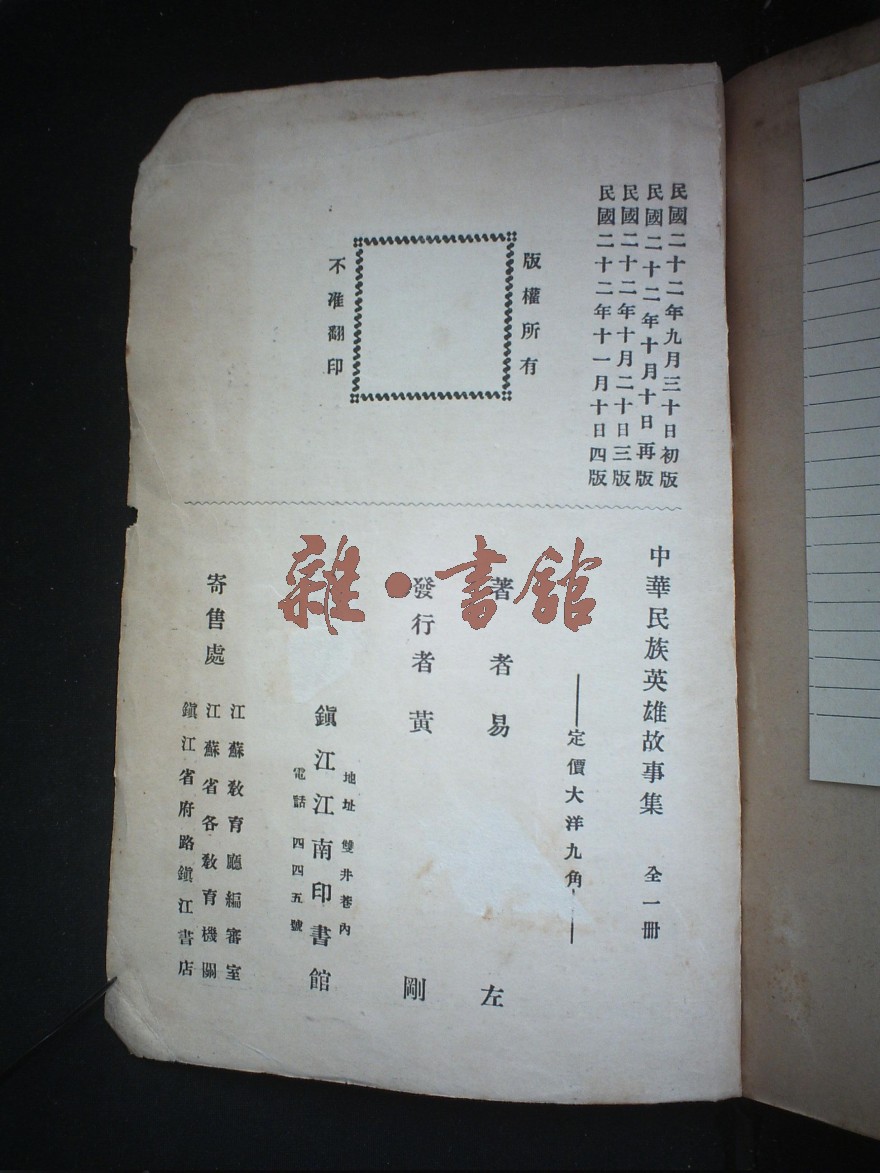 民國二十二年九月三十日初版
民國二十二年十月十日再版
民國二十二年十月二十日三版
民國二十二年十一月十日四版
版權所有
不准翻印
中華民族英雄故事集 全一册
定價大洋九角
著者 易 左
發行者 黃 剛
地址 雙井巷內
鎮江江南印書館
電話 四四五號
寄售處
江蘇教育廳編審室
江蘇省各教育機關
鎮江省府路鎮江書店
雜•書館